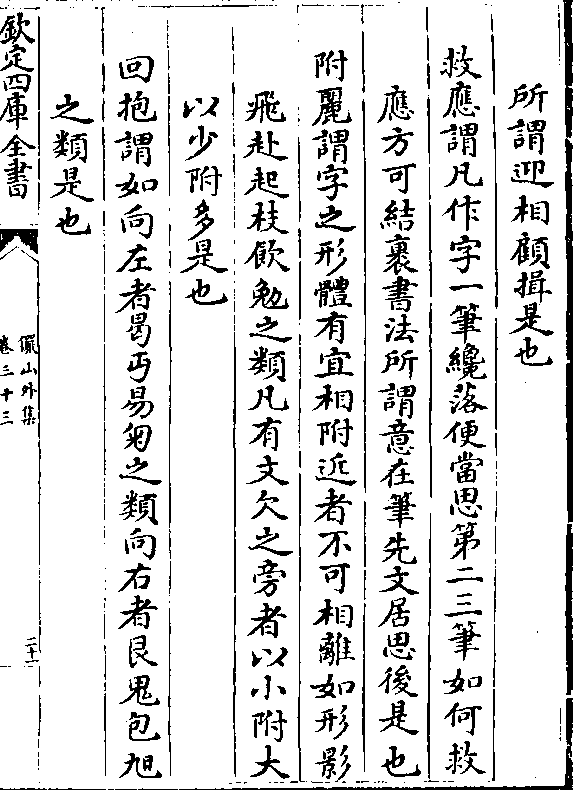 所謂迎相顧揖是也
救應謂凡作字一筆纔落便當思第二三筆如何救
應方可結裹書法所謂意在筆先文居思後是也
附麗謂字之形體有宜相附近者不可相離如形影
飛赴起枝飲勉之類凡有文欠之旁者以小附大
以少附多是也
回抱謂如向左者曷丏易匊之類向右者艮鬼包旭
之類是也
欽定四庫全書
儼山外集
卷三十三
二十一